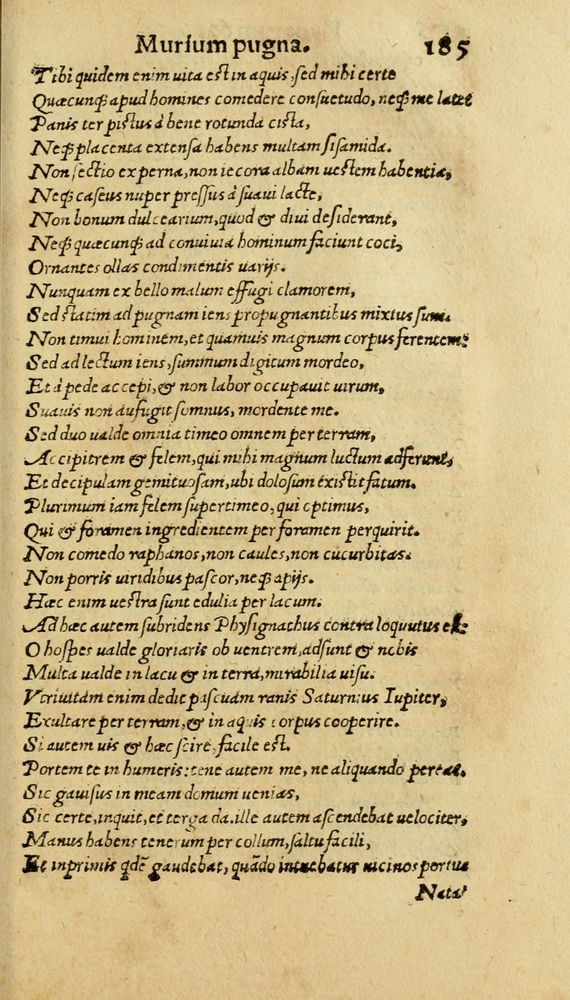 Murium pugna. 185
Tibi quidem enim uita est in aquis, sed mihi certe
Quæcunq; apud homines comedere consuetudo, neq; me latet
Panis ter pistus à bene rotunda cista,
Neq; placenta extensa habens multam sisamida.
Non sectio ex perna, non iecora albam uestem habentia,
Neq; caseus nuper pressus à suaui lacte,
Non bonum dulcearium, quod & diui desiderant,
Neq; quæcunq; ad conuiuia hominum faciunt coci,
Ornantes ollas condimentis uarijs.
Nunquam ex bello malum effugi clamorem,
Sed statim ad pugnam iens propugnantibus mixtus sum.
Non timui hominem, et quamuis magnum corpus ferentem:
Sed ad lectum iens, summum digitum mordeo,
Et à pede accepi, & non labor occupauit uirum,
Suauis non aufugit somnus, mordente me.
Sed duo ualde omnia timeo omnem per terram,
Accipitrem & felem, qui mihi magnum luctum adferunt,
Et decipulam gemituosam, ubi dolosum existit fatum.
Plurimum iam felem supertimeo, qui optimus,
Qui & foramen ingredientem per foramen perquirit.
Non comedo raphanos, non caules, non cucurbitas.
Non porris uiridibus pascor, neq; apijs.
Hæc enim uestra sunt edulia per lacum.
Ad hæc autem subridens Physignathus contra loquutus est
O hospes ualde gloriaris ob uentrem, adsunt & nobis
Multa ualde in lacu & in terra, mirabilia uisu.
Vtriuitam enim dedit pascuam ranis Saturnius Iupiter,
Exultare per terram, & in aquis corpus cooperire.
Si autem uis & hæc scire, facile est.
Portem te in humeris: tene autem me, ne aliquando pereas.
Sic gauisus in meam domum uenias,
Sic certe, inquit, et terga da. ille autem ascendebat uelociter,
Manus habens tenerum per collum, saltu facili,
Et inprimis qdẽ gaudebat, quãdo intuebatur uicinos portus
Nata&#x27;